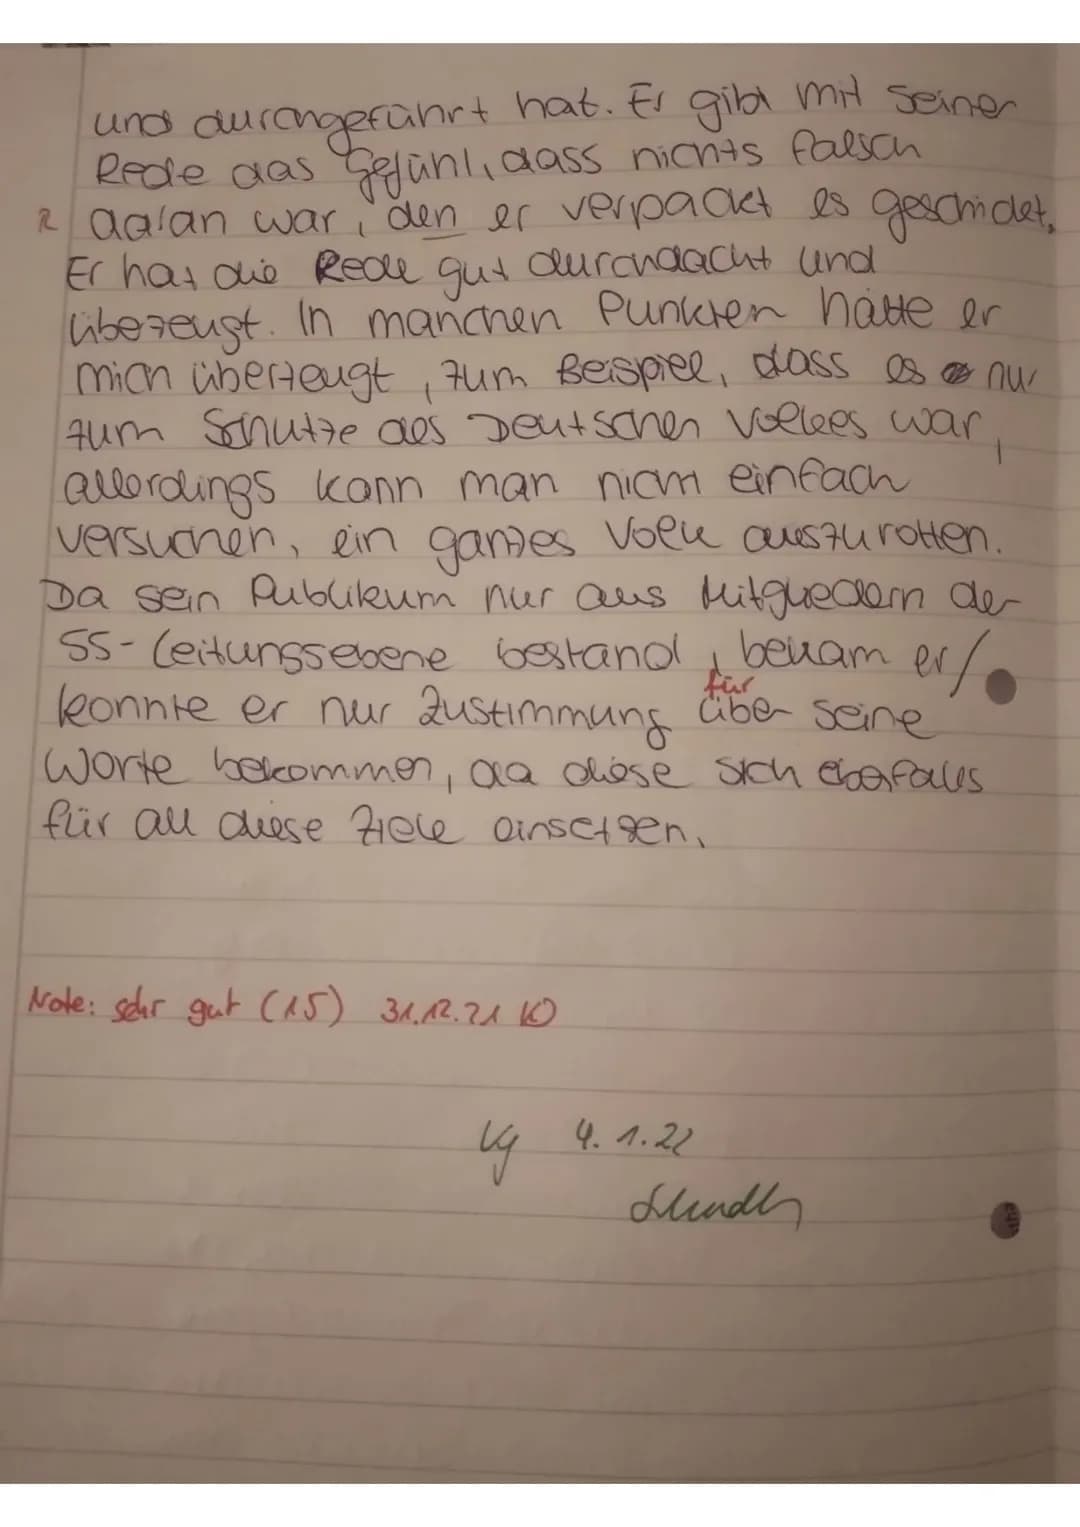 und durchgeführt hat. Er gibt mit seiner
Rede das Gefühl, dass nichts falsch
R daran war, den er verpackt es geschickt.
Er hat die Rede gut durchdacht und
überzeugt. In manchen Punkten hätte er
mich überzeugt, zum Beispiel, dass es nur
zum Schutze des Deutschen Volkes war,
allerdings kann man nicht einfach
versuchen, ein ganzes Volk auszurotten.
Da sein Publikum nur aus Mitgliedern der
SS-Leitungsebene bestand, bekam er/
für
konnte er nur Zustimmung über seine
Worte bekommen, da diese sich ebenfalls
für all diese Ziele einsetzen.
Note: sehr gut (15) 31.12.21
4.1.22